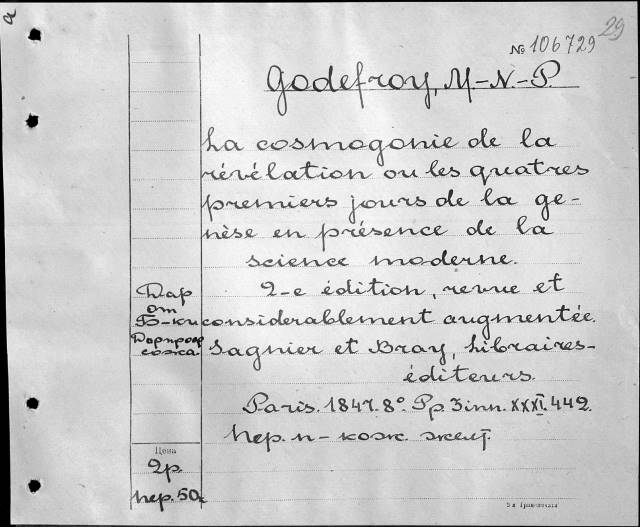 29
№ 106729
Godefroy, M-N.-P.
La cosmogonie de la
révélation ou les quatres
premiers jours de la ge-
nèse en présence de la
science moderne.
2-e édition, revue et
considerablement augmentée.
Sagnier et Bray, libraires-
éditeurs.
Paris. 1847. 8° Pp. 3 inn. XXXI. 442.
Пер. п-кож. желт.
Дар
от
Б-ки
Цена
2р.
Пер. 50к